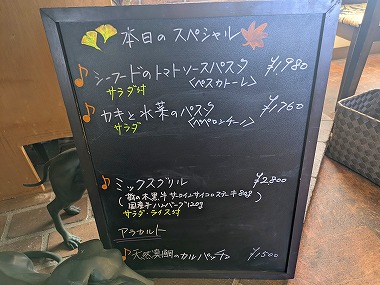 本日のスペシャル
♪シーフードのトマトソースパスタ ¥1,980
サラダ付 〈ペスカトーレ〉
♪カキと水菜のパスタ ¥1,760
サラダ 〈ペペロンチーノ〉
♪ミックスグリル ¥2800
牛サーロインサイコロステーキ80g
国産牛ハンバーグ120g
サラダ・ライス付
アラカルト
♪天然真鯛のカルパッチョ ¥1500